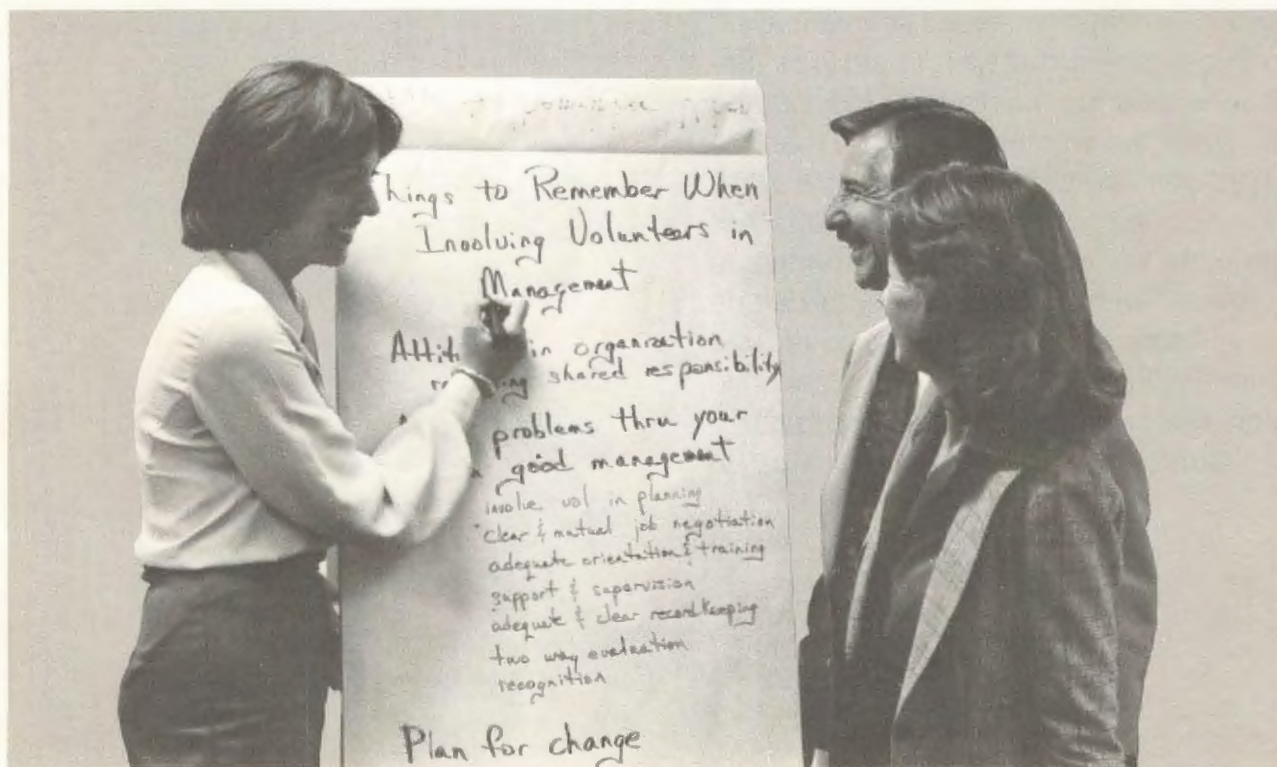 Things to Remember When
Involving Volunteers in
Management
in organization
shared responsibility
problems thru your
good management
involve vol in planning
clear & mutual job negotiation
adequate orientation & training
support & supervision
adequate & clear recordkeeping
two way evaluation
recognition
Plan for change